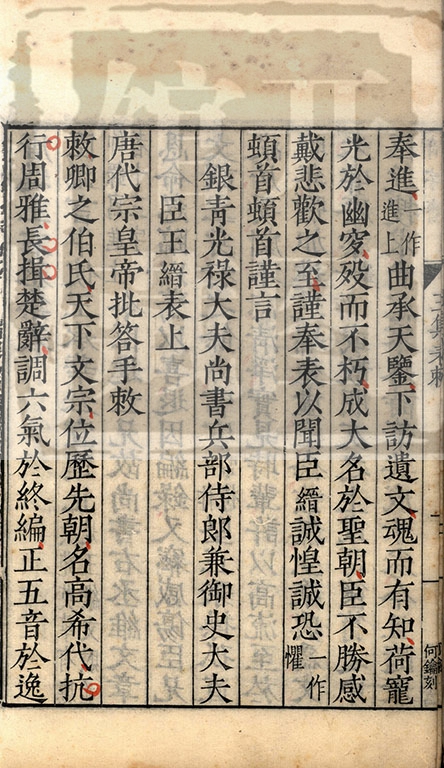 奉進一作進上曲承天鑒下訪遺文魂而有知荷寵
光於幽窔歿而不朽成大名於聖朝臣不勝感
戴悲歡之至謹奉表以聞臣縉誠惶誠恐一作懼
頓首頓首謹言
銀青光祿大夫尚書兵部侍郎兼御史大夫
臣王縉表上
唐代宗皇帝批答手敕
敕卿之伯氏天下文宗位歷先朝名高希代抗
行周雅長揖楚辭調六氣於終編正五音於逸
何鑰刻